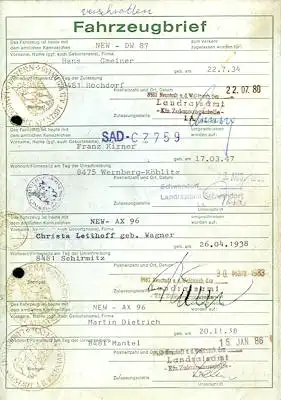 verschrotten
Fahrzeugbrief
Das Fahrzeug ist heute mit dem amtlichen Kennzeichen
NEW - DW 87
zum Verkehr zugelassen worden für
Vorname, Name (ggf. auch Geburtsname), Firma
Hans Gmeiner
geb. am 22.7.34
Wohnort/Firmensitz am Tag der Zulassung
8481 Hochdorf
Postleitzahl und Ort, Datum
22. 07. 80
Landratsamt
Kfz-Zulassungsstelle
Zulassungsstelle
I.A.
Das Fahrzeug ist heute mit dem amtlichen Kennzeichen
SAD-CZ759
umgeschrieben worden auf
Vorname, Name (ggf. auch Geburtsname), Firma
Franz Kirner
geb. am 17.03.47
Wohnort/Firmensitz am Tag der Umschreibung
8475 Wernberg-Köblitz
Postleitzahl und Ort, Datum
Schwandorf
Landratsamt Schwandorf
Zulassungsstelle
Das Fahrzeug ist heute mit dem amtlichen Kennzeichen
NEW- AX 96
umgeschrieben worden auf
Vorname, Name (ggf. auch Geburtsname), Firma
Christa Leithoff geb. Wagner
geb. am 26.04.1938
Wohnort/Firmensitz am Tag der Umschreibung
8481 Schirmitz
Postleitzahl und Ort, Datum
30. März 1983
Landratsamt
Stempel
Zulassungsstelle
Das Fahrzeug ist heute mit dem amtlichen Kennzeichen
NEW - AX 96
umgeschrieben worden auf
Vorname, Name (ggf. auch Geburtsname), Firma
Martin Dietrich
geb. am 20.11.38
Wohnort/Firmensitz am Tag der Umschreibung
8481 Mantel
Postleitzahl und Ort, Datum
15. JAN. 86
Landratsamt
Kfz-Zulassungsstelle
Stempel
Zulassungsstelle